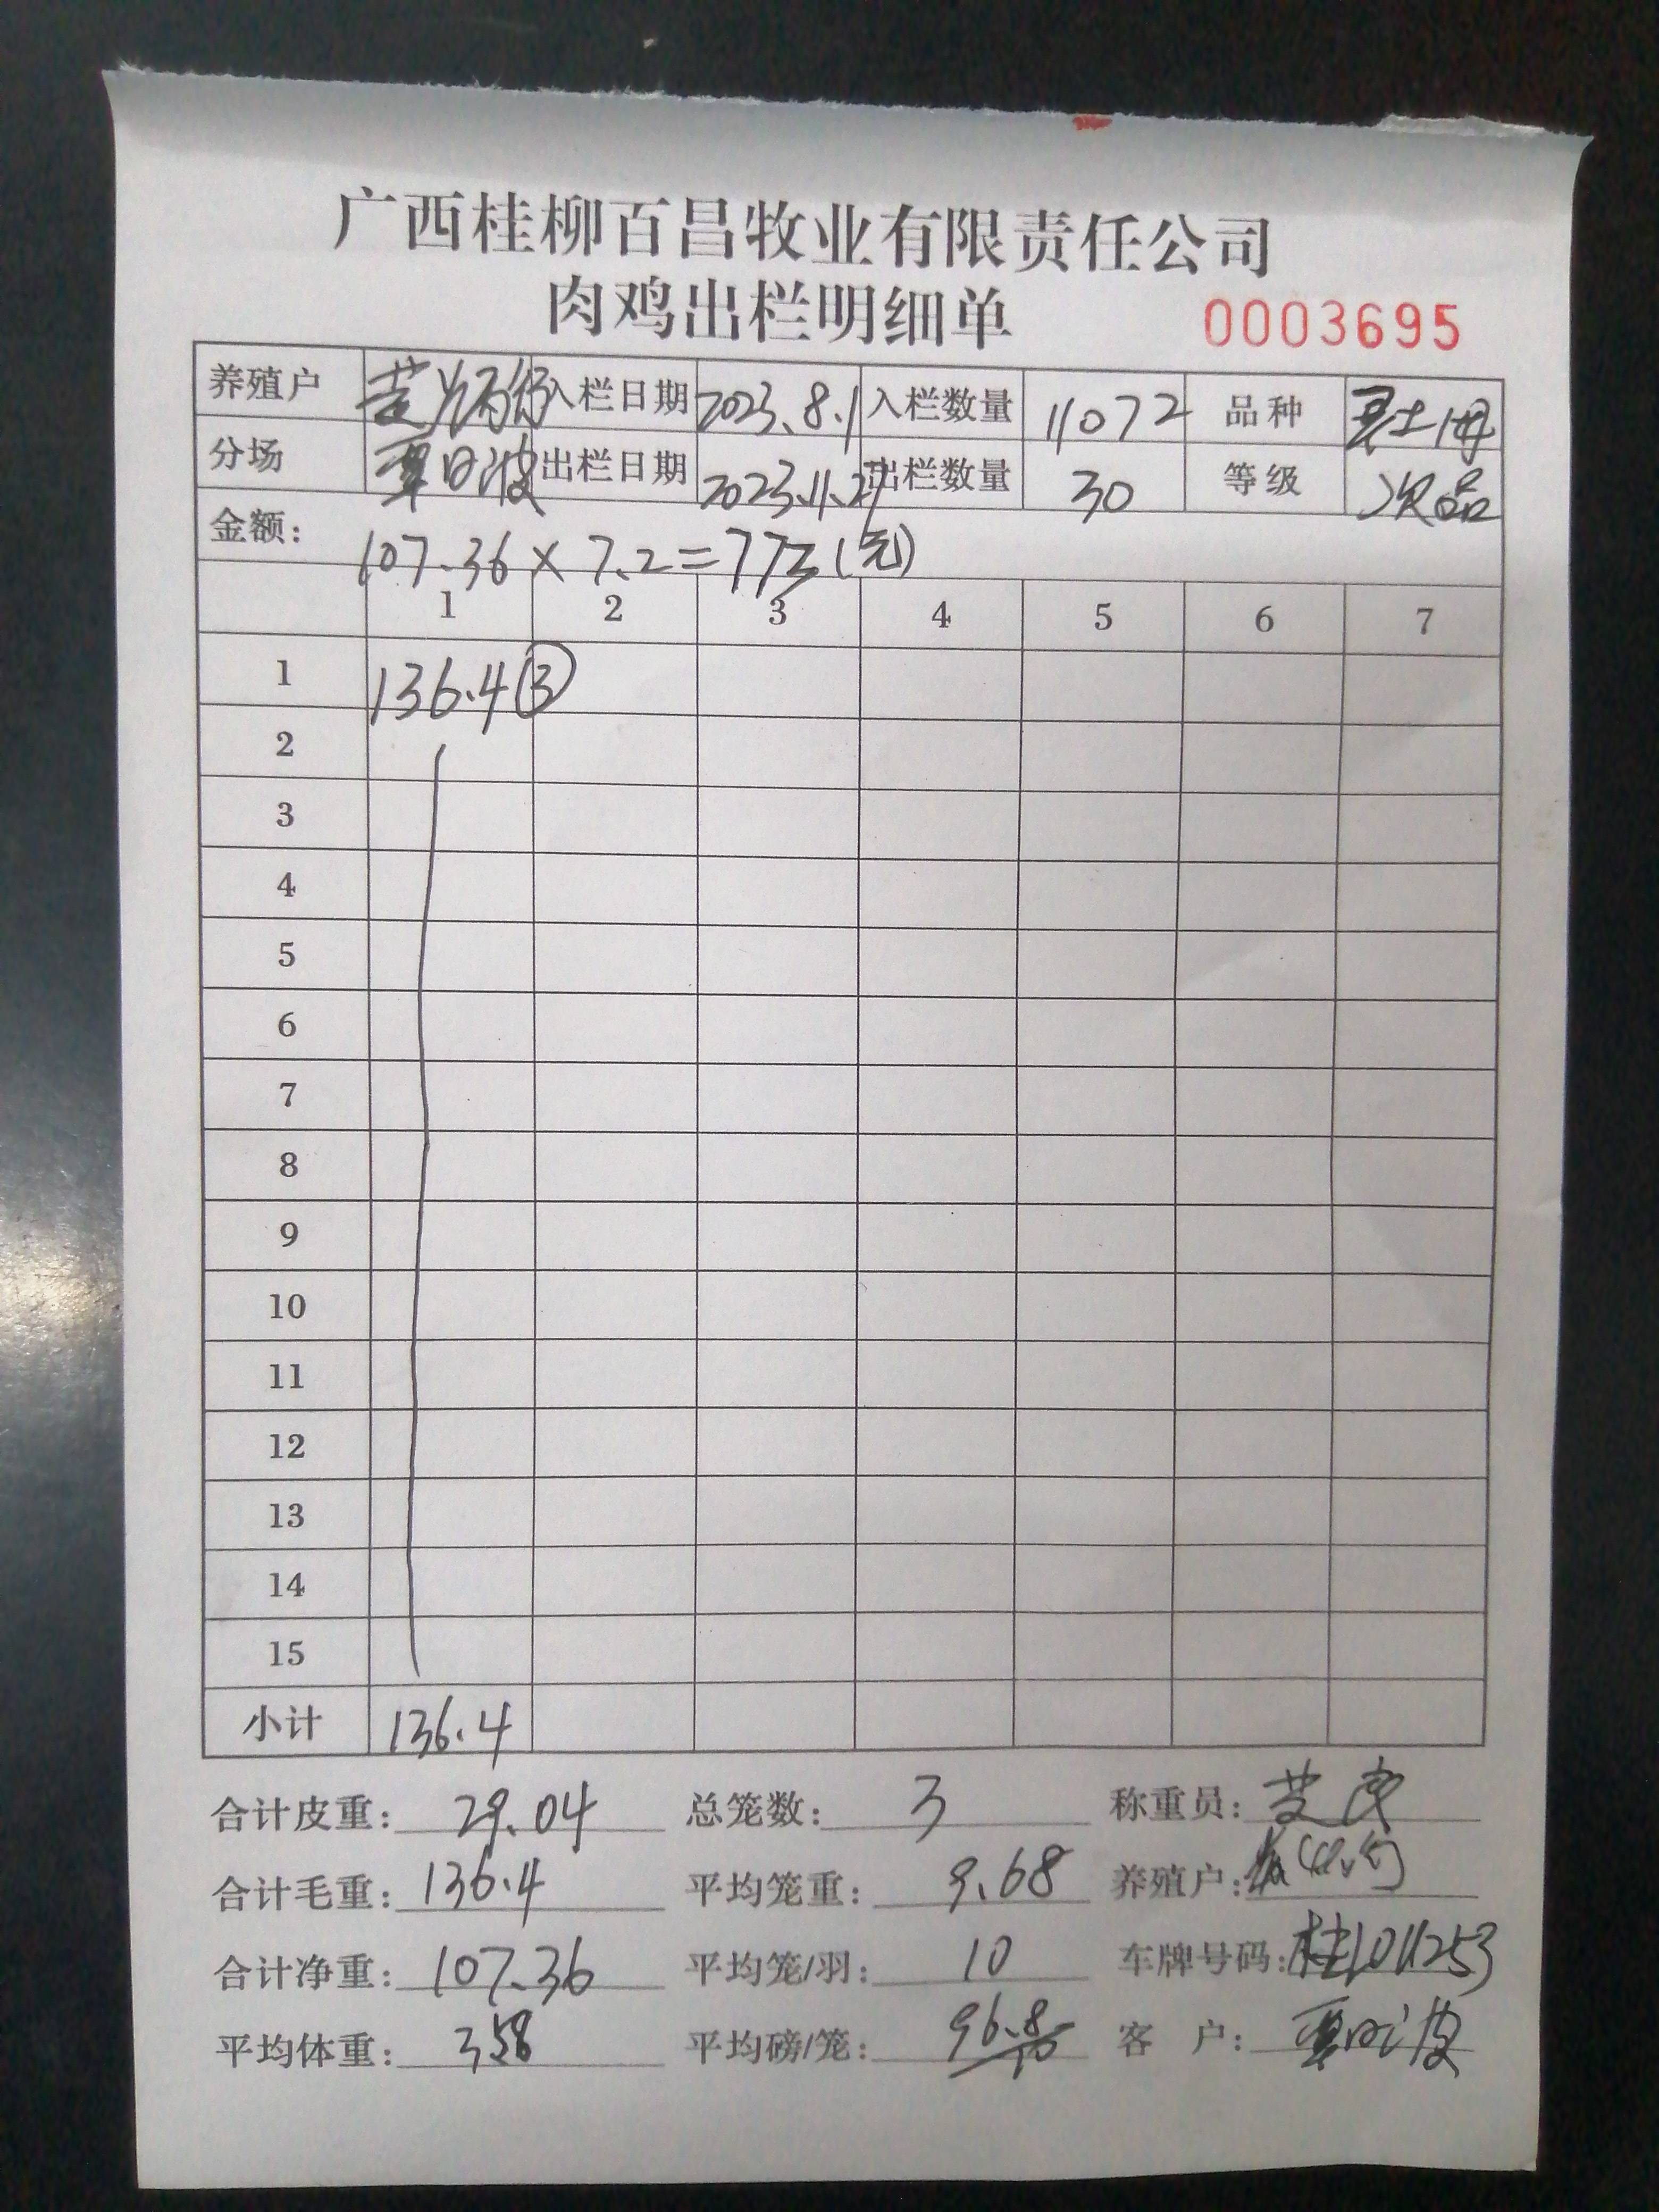 广西桂柳百昌牧业有限责任公司
肉鸡出栏明细单 0003695
养殖户 入栏日期 2023.8.1 入栏数量 11072 品种 土
分场 覃日波 出栏日期 2023.11.27 出栏数量 30 等级 次品
金额: 107.36×7.2=773(元)
1 2 3 4 5 6 7
1 136.4③
2
3
4
5
6
7
8
9
10
11
12
13
14
15
小计 136.4
合计皮重: 29.04 总笼数: 3 称重员:
合计毛重: 136.4 平均笼重: 9.68 养殖户:
合计净重: 107.36 平均笼/羽: 10 车牌号码:
平均体重: 3.58 平均磅/笼: 96.8/10 客 户: 覃日波